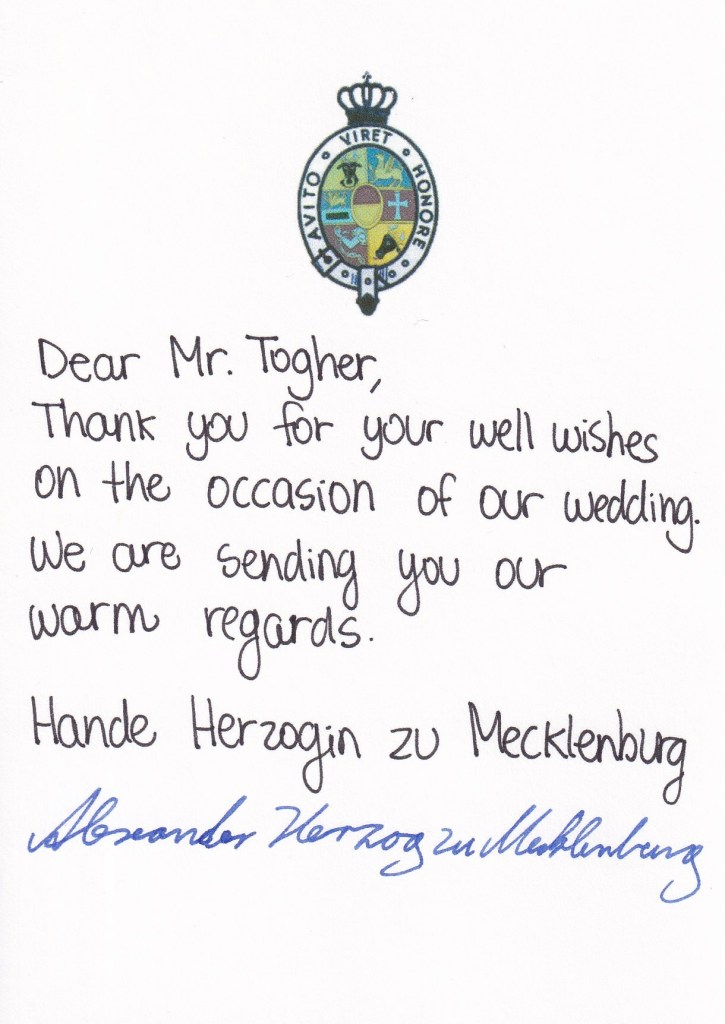 AVITO VIRET HONORE
Dear Mr. Togher,
Thank you for your well wishes
on the occasion of our wedding.
We are sending you our
warm regards.
Hande Herzogin zu Mecklenburg
Alexander Herzog zu Mecklenburg